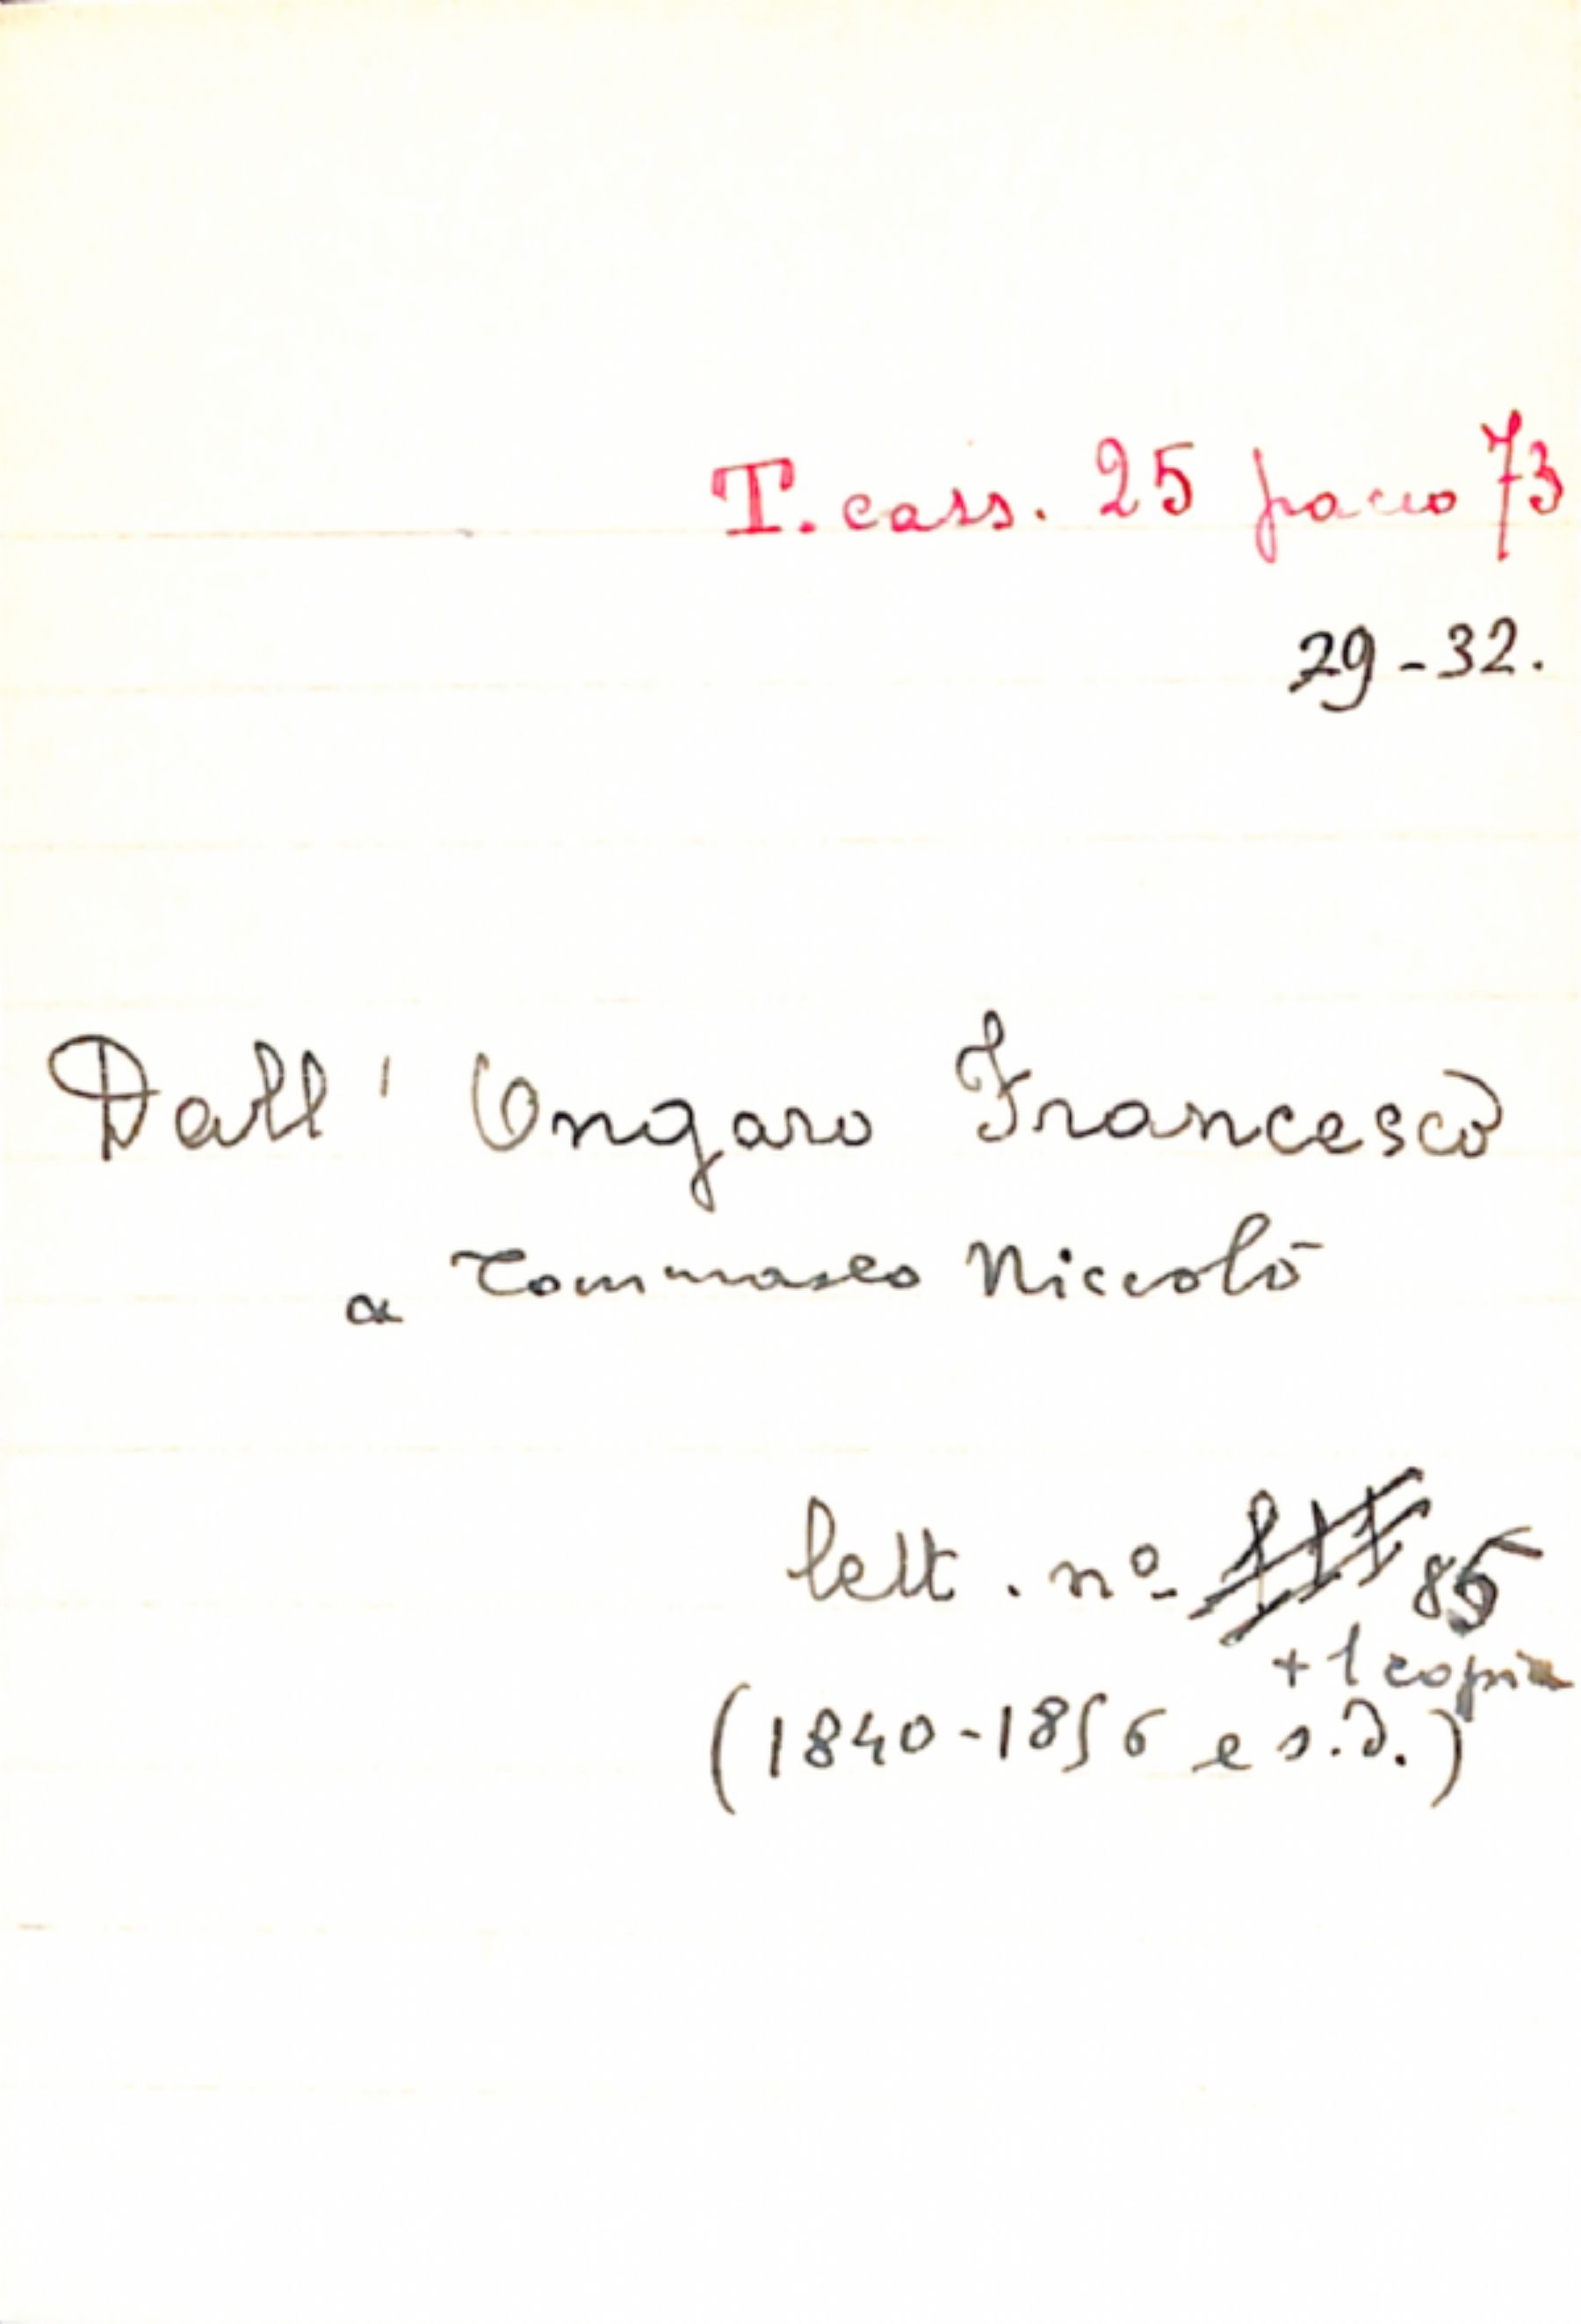 T. cass. 25 pacco 73
29-32.
Dall' Ongaro Francesco
a Tommaseo Niccolò
lett. nº 85
+1 copia
(1840-1856 e s.d.)